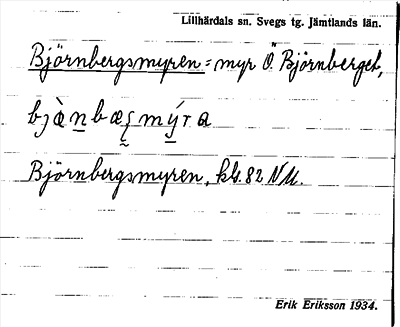 Lillhärdals sn. Svegs tg. Jämtlands län.
Björnbergsmyren = myr Ö. Björnberget,
bjὰn bæʂ mýra
Björnbergsmyren, kbl. 82 NU.
Erik Eriksson 1934.